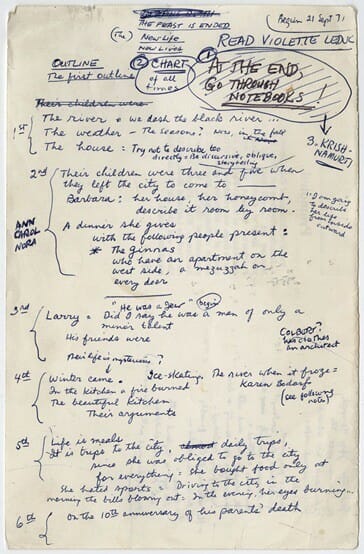 THE FEAST IS ENDED
Begun 21 Sept 71
(The) New Life
New Lives
READ VIOLETTE LEDUC
OUTLINE
The first outline
② CHART
of all
times
①
AT THE END,
GO THROUGH
NOTEBOOKS!
3- KRISH-
NAMURTI
Their children were
1st
The river = we dash the black river ...
The weather - The seasons? Now, in the fall
The house = Try not to describe too
directly = Be discursive, oblique,
storytelling
2nd
Their children were three and five when
they left the city to come to
Barbara: her house, her honeycomb,
describe it room by room.
"I am going
to describe
her life
from inside
outward
ANN
CAROL
NORA
A dinner she gives
with the following people present:
* The Ginnas
who have an apartment on the
west side, a mezuzzah on
every door
"He was a Jew" begin
3rd
Larry = Did I say he was a man of only a
minor talent
His friends were
COLBERT?
was clothes
an architect
life is mysterious?
4th
Winter came. Ice-skating. The river when it froze =
In the kitchen a fire burned
Karen
The beautiful kitchen
(see following
note)
Their arguments
5th
Life is meals
It is trips to the city, almost daily trips,
since she was obliged to go to the city
for everything = she bought food only at
She hated sports = Driving to the city in the
morning the bills blowing out = In the evening, her eyes burning..
6th
on the 10th anniversary of his parents' death